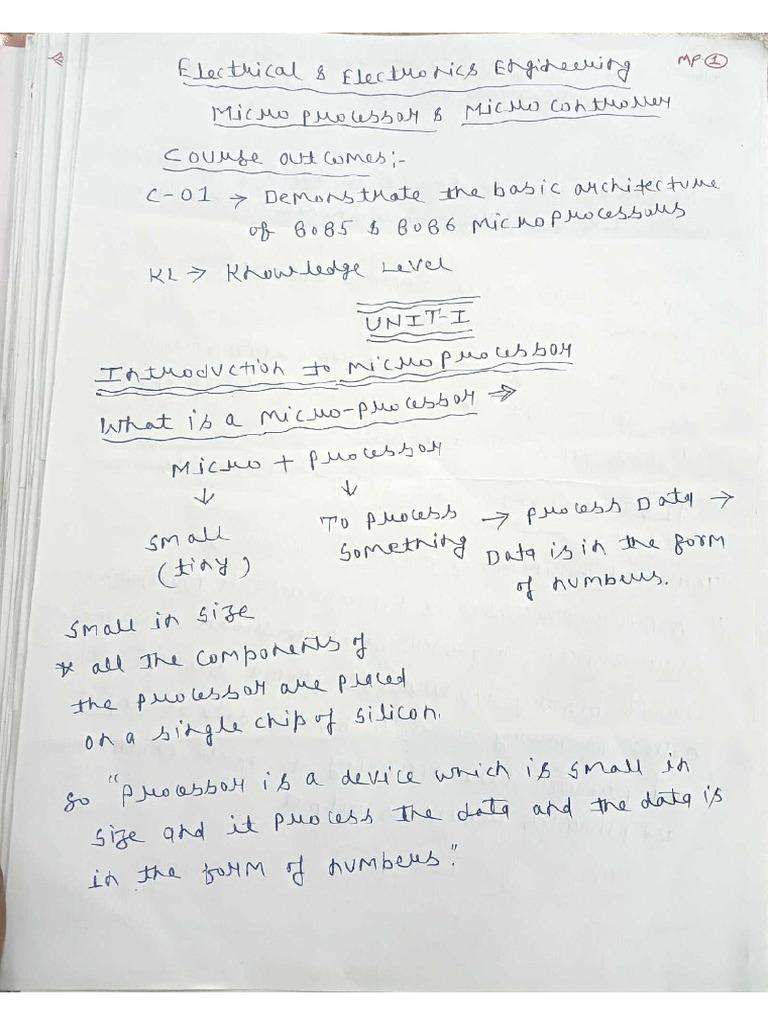 Electrical & Electronics Engineering MP ①
Microprocessor & Microcontroller
Course outcomes:-
C-01 → Demonstrate the basic architecture
of 8085 & 8086 Microprocessors
KL → Knowledge Level
UNIT-I
Introduction to Microprocessor
What is a Micro-processor →
Micro + Processor
↓ ↓
Small (tiny)
To process something → process Data →
Data is in the form
of numbers.
Small in size
* all the components of
the processor are placed
on a single chip of silicon.
So "processor is a device which is small in
size and it process the data and the data is
in the form of numbers."